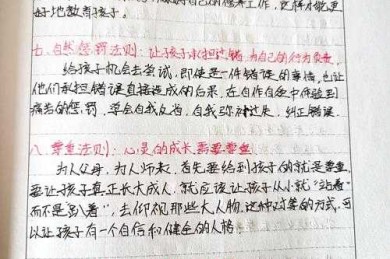 好地教育孩子。
七、自然惩罚法则：让孩子承担过错，为自己的行为负责
给孩子机会去尝试，即使是一件错误的事情，也让
他们承担错误直接造成的后果，在自作自受中体验到
痛苦的惩罚，学会自我反省，自我弥补过失，纠正错误。
八、尊重法则：心灵的成长需要尊重
为人父母，为人师表，首先要给到孩子的就是尊重，
要让孩子真正长大成人，就应该让孩子从小就“站着”
而不是“趴着”，去仰视那些大人物，这种对等的方式，可
以让孩子有一个自信和健全的人格。